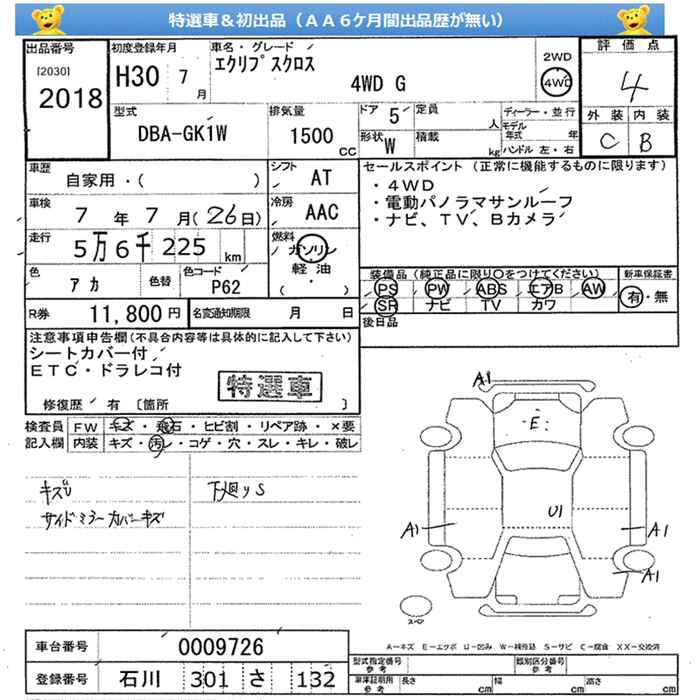 特選車＆初出品（ＡＡ６ケ月間出品歴が無い）
出品番号
[2030]
2018
初度登録年月
H30 7月
車名・グレード
エクリプスクロス
4WD G
2WD
4WD
評価点
4
外装 内装
C B
型式
DBA-GK1W
排気量
1500 CC
ドア 5
定員 人
形状 W
積載 kg
ディーラー・並行
モデル年式 年
ハンドル 左・右
車歴
自家用・( )
シフト AT
車検
7年7月(26日)
冷房 AAC
走行
5万6千225km
燃料
ガソリン
軽油
( ・ )
色
アカ
色替
色コード
P62
R券 11,800円
名変通知期限 月 日
セールスポイント（正常に機能するものに限ります）
・４WD
・電動パノラマサンルーフ
・ナビ、ＴＶ、Ｂカメラ
装備品（純正品に限り○をつけてください）
PS PW ABS エアB AW
SR ナビ TV カワ
新車保証書
有・無
後日品
注意事項申告欄(不具合内容等は具体的に記入して下さい)
シートカバー付
ＥＴＣ・ドラレコ付
特選車
修復歴 有 〔箇所 〕
検査員記入欄
FW キズ・飛石・ヒビ割・リペア跡・×要
内装 キズ・汚レ・コゲ・穴・スレ・キレ・破レ
キズU
下廻りS
サイドミラーカバーキズ
A1
E
U1
A1
A1
A1
スペア
A－キズ E－エクボ U－凹み W－補修跡 S－サビ C－腐食 XX－交換済
車台番号 0009726
登録番号 石川 301 さ 132
型式指定番号 参考
類別区分番号 参考
車庫証明用 参考
長さ cm 幅 cm 高さ cm